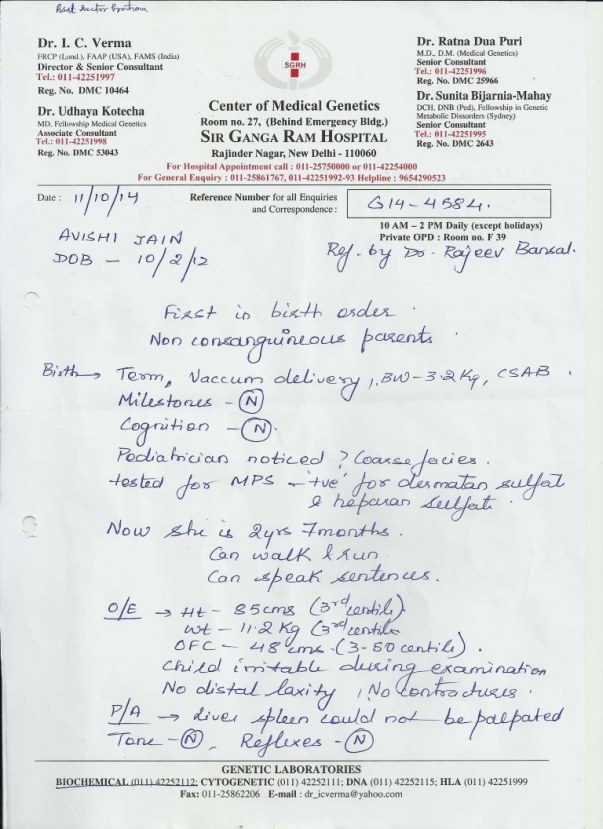 Dr. I. C. Verma
FRCP (Lond.), FAAP (USA), FAMS (India)
Director & Senior Consultant
Tel.: 011-42251997
Reg. No. DMC 10464
Dr. Udhaya Kotecha
MD, Fellowship Medical Genetics
Associate Consultant
Tel.: 011-42251998
Reg. No. DMC 53043
SGRH
Center of Medical Genetics
Room no. 27, (Behind Emergency Bldg.)
SIR GANGA RAM HOSPITAL
Rajinder Nagar, New Delhi - 110060
Dr. Ratna Dua Puri
M.D., D.M. (Medical Genetics)
Senior Consultant
Tel.: 011-42251996
Reg. No. DMC 25966
Dr. Sunita Bijarnia-Mahay
DCH, DNB (Ped), Fellowship in Genetic
Metabolic Dissorders (Sydney)
Senior Consultant
Tel.: 011-42251995
Reg. No. DMC 2643
For Hospital Appointment call : 011-25750000 or 011-42254000
For General Enquiry : 011-25861767, 011-42251992-93 Helpline : 9654290523
Date : 11/10/14
Reference Number for all Enquiries
and Correspondence :
G14-4584.
10 AM – 2 PM Daily (except holidays)
Private OPD : Room no. F 39
AVISHI JAIN
DOB - 10/2/12
Ref. by Dr. Rajeev Bansal.
First in birth order.
Non consanguineous parents.
Birth → Term, Vaccum delivery, BW-3.2Kg, CSAB.
Milestones - N
Cognition - N.
Pediatrician noticed ? Coarse facies.
tested for MPS - '+ve' for dermatan sulfat
& heparan sulfat.
Now she is 2yrs 7months.
Can walk & run
Can speak sentences.
O/E → Ht - 85cms (3rd centile).
Wt - 11.2 Kg (3rd centile
OFC - 48 cms. (3-50 centile).
Child irritable during examination
No distal laxity, No contractures.
P/A → Liver spleen could not be palpated
Tone - N, Reflexes - N
GENETIC LABORATORIES
BIOCHEMICAL (011) 42252112; CYTOGENETIC (011) 42252111; DNA (011) 42252115; HLA (011) 42251999
Fax: 011-25862206 E-mail : dr_icverma@yahoo.com